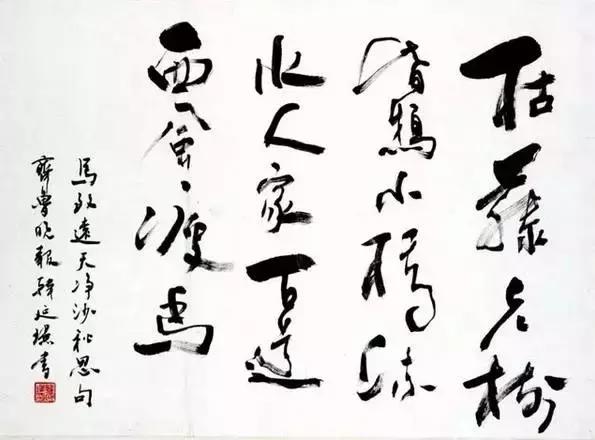 枯藤老樹
昏鴉小橋流
水人家古道
西風瘦馬
馬致遠天净沙秋思句
齊魯晚報韓廷書